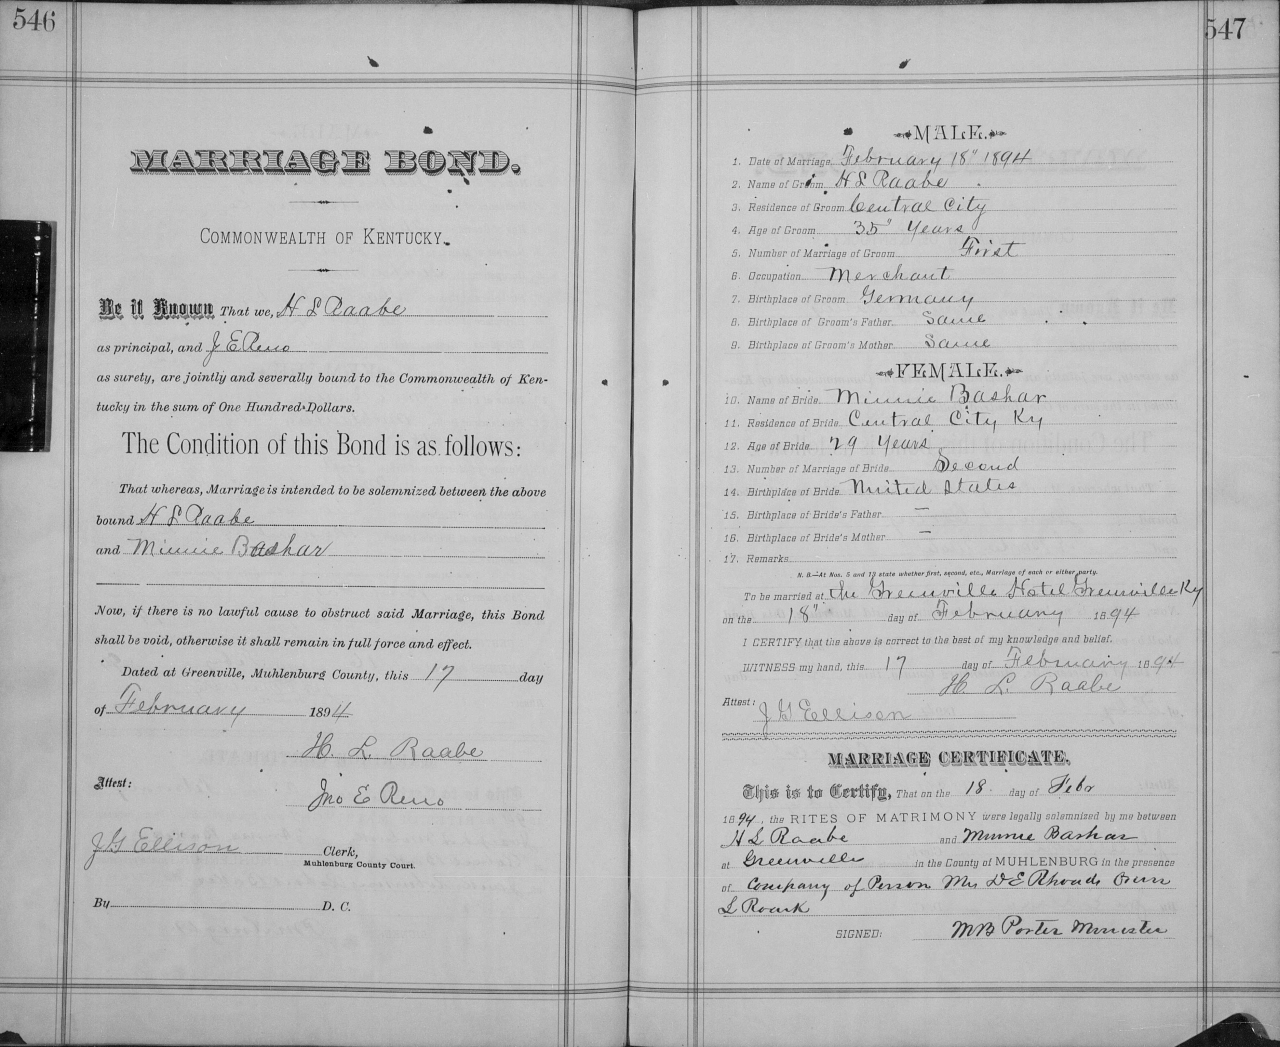 546
MARRIAGE BOND.
COMMONWEALTH OF KENTUCKY.
Be it Known That we, H L Raabe
as principal, and J E Reno
as surety, are jointly and severally bound to the Commonwealth of Ken-
tucky in the sum of One Hundred Dollars.
The Condition of this Bond is as follows:
That whereas, Marriage is intended to be solemnized between the above
bound H L Raabe
and Minnie Bashar
Now, if there is no lawful cause to obstruct said Marriage, this Bond
shall be void, otherwise it shall remain in full force and effect.
Dated at Greenville, Muhlenburg County, this 17 day
of February 1894
H. L. Raabe
Attest:
Jno E Reno
J G Ellison Clerk,
Muhlenburg County Court.
By D. C.
547
MALE.
1. Date of Marriage February 18" 1894
2. Name of Groom H L Raabe
3. Residence of Groom Central City
4. Age of Groom 35 Years
5. Number of Marriage of Groom First
6. Occupation Merchant
7. Birthplace of Groom Germany
8. Birthplace of Groom's Father Same
9. Birthplace of Groom's Mother Same
FEMALE.
10. Name of Bride Minnie Bashar
11. Residence of Bride Central City Ky
12. Age of Bride 29 Years
13. Number of Marriage of Bride Second
14. Birthplace of Bride United States
15. Birthplace of Bride's Father —
16. Birthplace of Bride's Mother —
17. Remarks
N. B.—At Nos. 5 and 13 state whether first, second, etc., Marriage of each or either party.
To be married at In Greenville Hotel Greenville Ky
on the 18" day of February 1894
I CERTIFY that the above is correct to the best of my knowledge and belief.
WITNESS my hand, this 17 day of February 1894
H. L. Raabe
Attest:
J G Ellison
MARRIAGE CERTIFICATE.
This is to Certify, That on the 18 day of Febr
1894, the RITES OF MATRIMONY were legally solemnized by me between
H L Raabe and Minnie Bashar
at Greenville in the County of MUHLENBURG in the presence
of Company of Person Mrs D E Rhoads
L Roark
SIGNED: M B Porter Minister